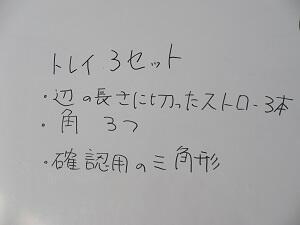 トレイ 3セット
・辺の長さに切ったストロー3本
・角 3つ
・確認用の三角形